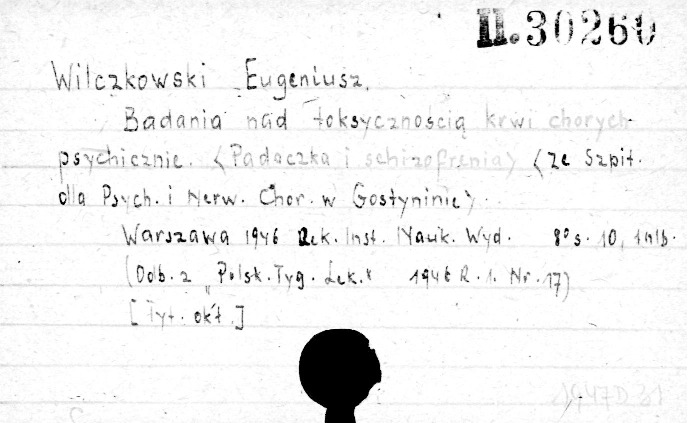 II. 30260
Wilczkowski Eugeniusz.
Badania nad toksycznością krwi chorych
psychicznie. <Padaczka i schizofrenia> <Ze Szpit.
dla Psych. i Nerw. Chor. w Gostyninie>
Warszawa 1946 Lek. Inst. Nauk. Wyd. 8° s. 10, 1 nlb.
(Odb. z „Polsk. Tyg. Lek." 1946 R. 1. Nr. 17)
[Tyt. okł.]
1947 D 31